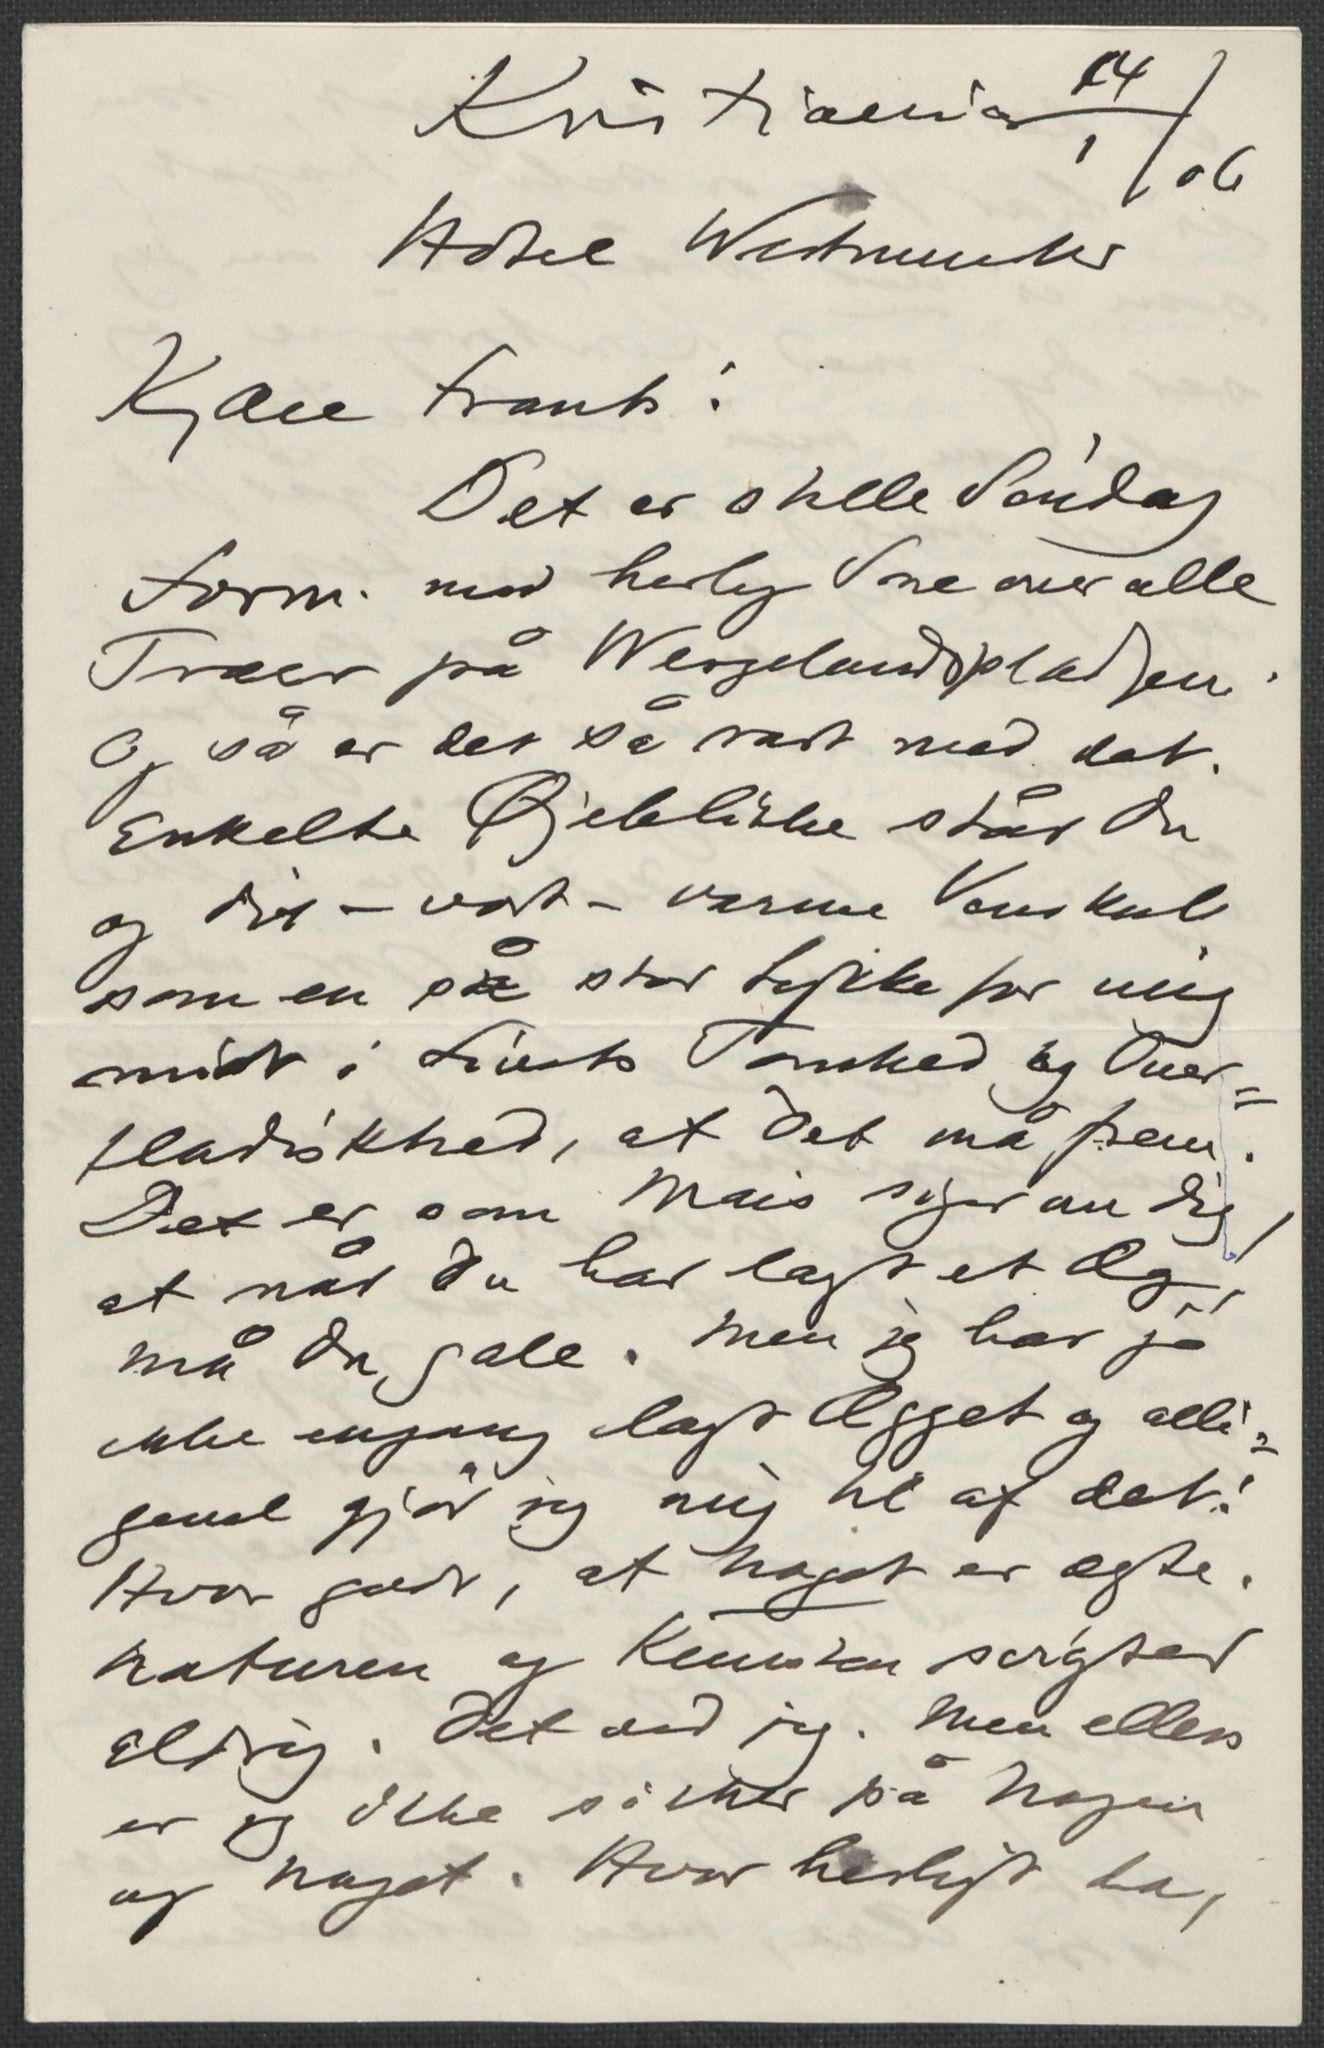 Kristiania 14/1/06
Hotel Westminster
Kjære Frants!
Det er stille Søndag
Form. med herlig Sne over alle
Træer på Wergelandspladsen.
Og så er det så rart med det.
Enkelte Øjeblikke står Du
og dit – vort – varme Venskab
som en så stor Lykke for mig
midt i Livets Tomhed og Over=
fladiskhed, at det må frem.
Det er som Mais siger om dig,
at når Du har lagt et Æg,
må Du gale. Men jeg har jo
ikke engang lagt Ægget og alli=
gevel gjør jeg mig til af det!
Hvor godt, at noget er ægte.
Naturen og Kunsten svigter
aldrig. Det ved jeg. Men ellers
er jeg ikke sikker på Nogen
og Noget. Hvor herligt da,